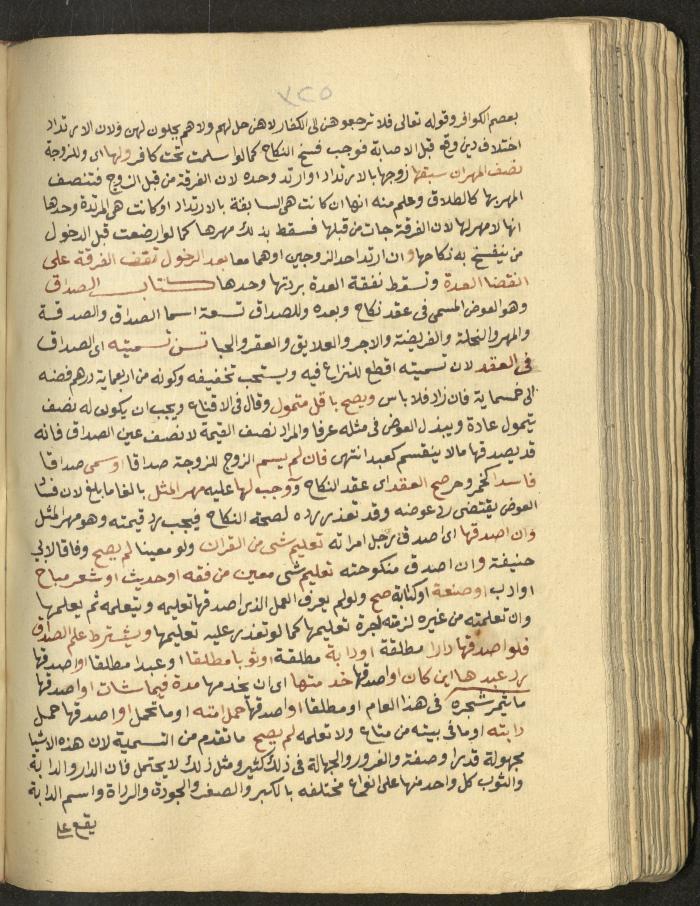 ٣٢٥
بعصم الكوافر وقوله تعالى فلا ترجعوهن الى الكفار لا هن حل لهم ولا هم يحلون لهن ولان الارتداد
اختلاف دين وقع قبل الاصابة فوجب فسخ النكاح كما لو اسلمت تحت كافر ولها اى وللزوجة
نصف المهر ان سبقها زوجها بالارتداد او ارتد وحده لان الفرقة من قبل الزوج فتنصف
المهر بها كالطلاق وعلم منه انها ان كانت هى السابقة بالارتداد او كانت هى المرتدة وحدها
انها لا مهر لها لان الفرقة جات من قبلها فسقط بذلك مهرها كما لو ارضعت قبل الدخول
من ينفسخ به نكاحها وان ارتد احد الزوجين او هما معا بعد الدخول تقف الفرقة على
انقضا العدة وتسقط نفقة العدة بردتها وحدها كتاب الصداق
وهو العوض المسمى فى عقد نكاح وبعده وللصداق تسعة اسما الصداق والصدقة
والمهر والنحلة والفريضة والاجر والعلايق والعقر والحبا تسن تسميته اى الصداق
فى العقد لان تسميته اقطع للنزاع فيه ويستحب تخفيفه وكونه من اربعماية درهم فضه
الى خمسماية فان زاد فلا باس ويصح باقل متمول وقال فى الاقناع ويجب ان يكون له نصف
يتمول عادة ويبذل العوض فى مثله عرفا والمراد نصف القيمة لا نصف عين الصداق فانه
قد يصدقها ما لا ينقسم كعبد انتهى فان لم يسم الزوج للزوجة صداقا او سمى صداقا
فاسدا كخمر وحر صح العقد اى عقد النكاح ووجب لها عليه مهر المثل بالغا ما بلغ لان فساد
العوض يقتضى رد عوضه وقد تعذر رده لصحة النكاح فيجب رد قيمته وهو مهر المثل
وان اصدقها اى اصدق رجل امراته تعليم شى من القران ولو معينا لم يصح وفاقا لابى
حنيفة وان اصدق منكوحته تعليم شى معين من فقه او حديث او شعر مباح
او ادب او صنعة او كتابة صح ولو لم يعرف العمل الذى اصدقها تعليمه ويتعلمه ثم يعلمها
وان تعلمته من غيره لزمته اجرة تعليمها كما لو تعذر عليه تعليمها ويشترط علم الصداق
فلو اصدقها دارا مطلقة او دابة مطلقة او ثوبا مطلقا او عبدا مطلقا او اصدقها
رد عبدها اين كان او اصدقها خدمتها اى ان يخدمها مدة فيما شات او اصدقها
ما يثمر شجره فى هذا العام او مطلقا او اصدقها حمل امته او ما تحمل او اصدقها حمل
دابته او ما فى بيته من متاع ولا تعلمه لم يصح ما تقدم من التسمية لان هذه الاشيا
مجهولة قدرا وصفة والغرر والجهالة فى ذلك كثير ومثل ذلك لا يحتمل فان الدار والدابة
والثوب كل واحد منها على انواع مختلفه بالكبر والصغر والجودة والرداة واسم الدابة
يقع على